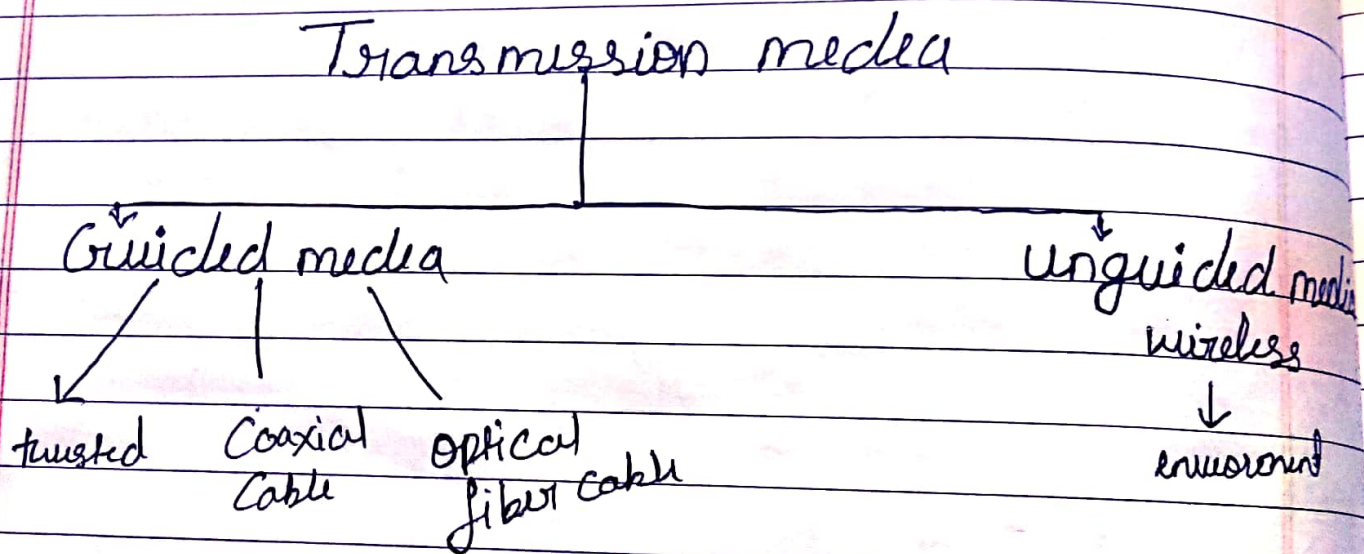 Transmission media
Guided media
unguided media
wireless
twisted
Coaxial
Cable
optical
fiber cable